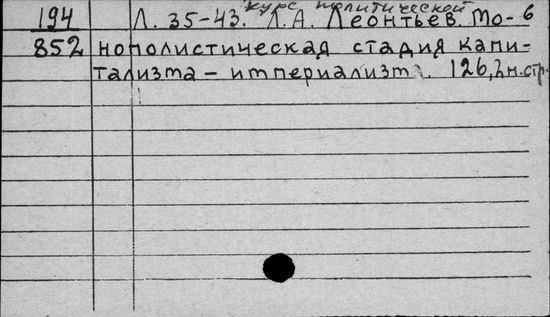 курс политической
194 Л. 35-43. Л.А. Леонтьев. Мо- 6
852 нополистическая стадия капи-
тализма - империализм. 126, 2 н. стр.